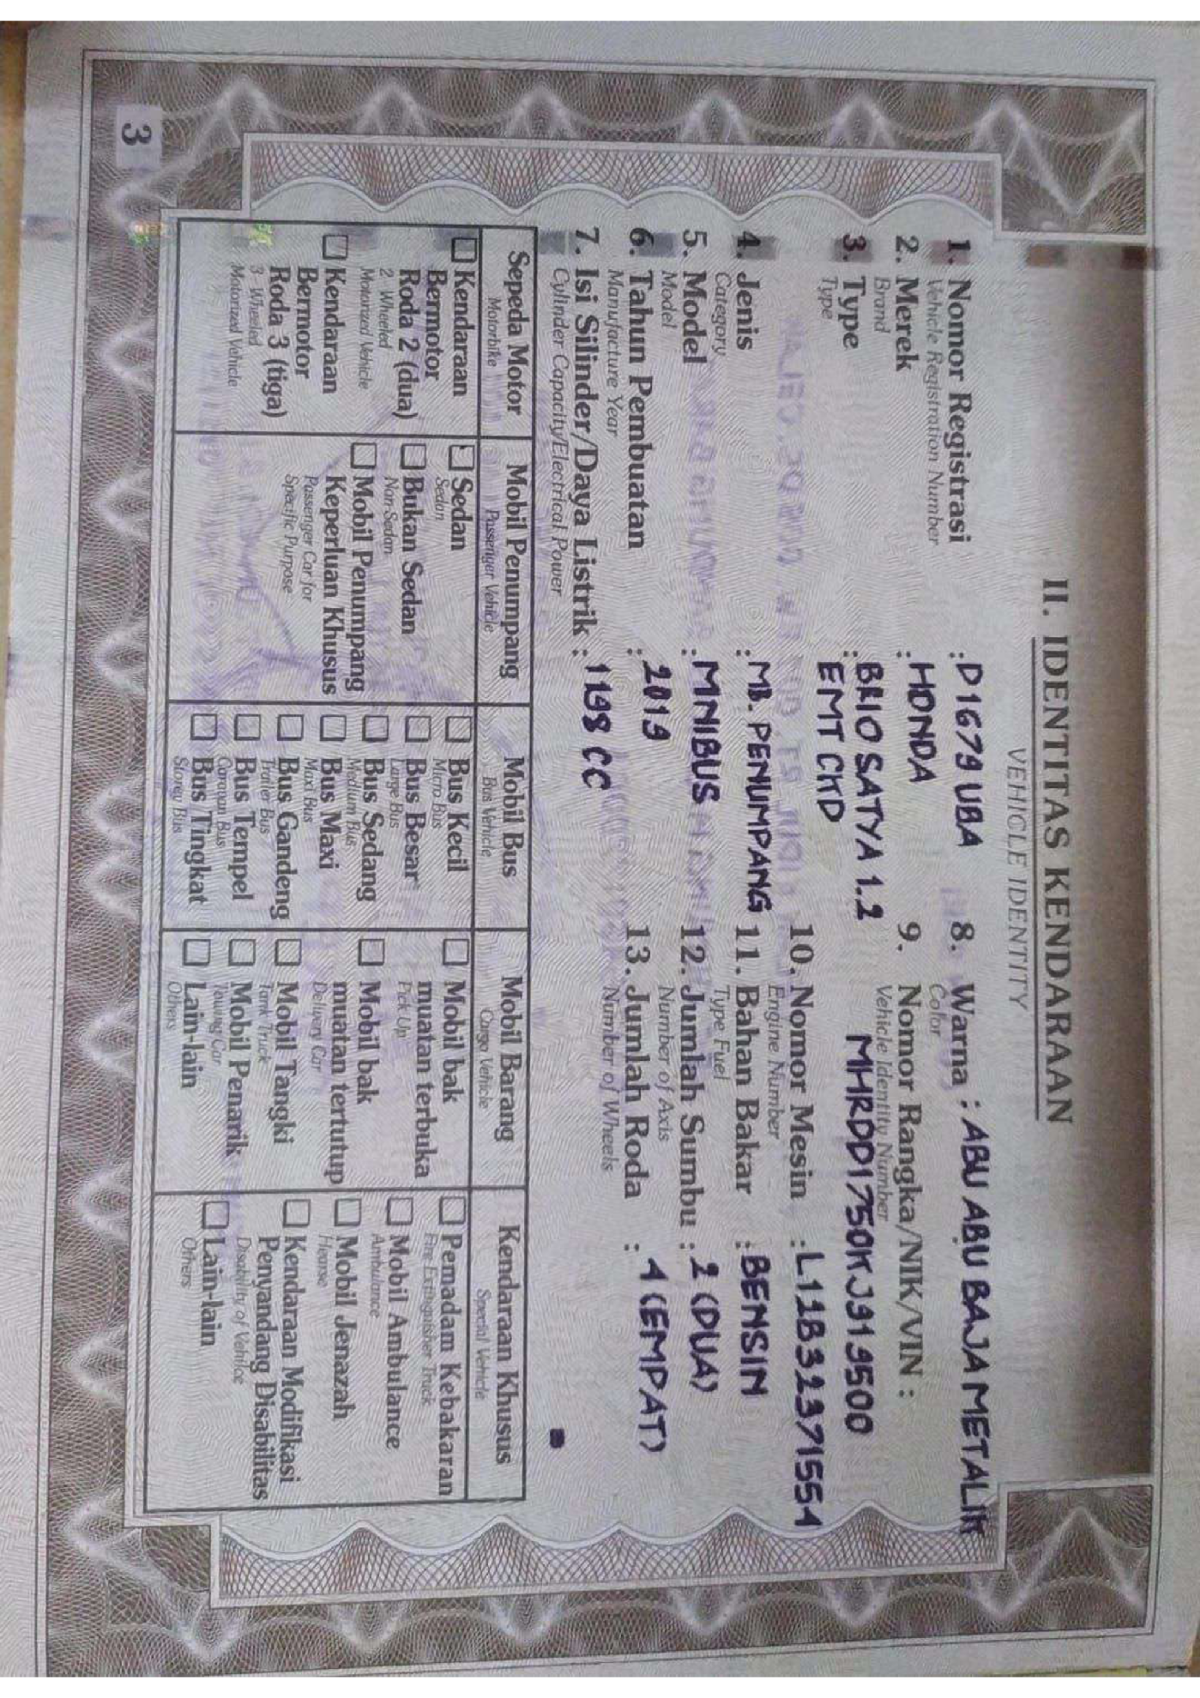 II. IDENTITAS KENDARAAN
VEHICLE IDENTITY
1. Nomor Registrasi : D1679 UBA
Vehicle Registration Number
2. Merek : HONDA
Brand
3. Type : BRIO SATYA 1.2
Type
EMT CKD
4. Jenis : MB. PENUMPANG
Category
5. Model : MNIBUS
Model
6. Tahun Pembuatan : 2019
Manufacture Year
7. Isi Silinder/Daya Listrik : 1198 CC
Cylinder Capacity/Electrical Power
8. Warna : ABU ABU BAJA METALIK
Color
9. Nomor Rangka/NIK/VIN :
Vehicle Identity Number
MHRDD1750KJ919500
10. Nomor Mesin : L12B32371554
Engine Number
11. Bahan Bakar : BENSIN
Type Fuel
12. Jumlah Sumbu : 2 (DUA)
Number of Axis
13. Jumlah Roda : 4 (EMPAT)
Number of Wheels
Sepeda Motor
Motorbike
☐ Kendaraan
Bermotor
Roda 2 (dua)
2 Wheeled
Motorized Vehicle
☐ Kendaraan
Bermotor
Roda 3 (tiga)
3 Wheeled
Motorized Vehicle
Mobil Penumpang
Passenger Vehicle
☐ Sedan
Sedan
☐ Bukan Sedan
Non Sedan
☐ Mobil Penumpang
Keperluan Khusus
Passenger Car for
Specific Purpose
Mobil Bus
Bus Vehicle
☐ Bus Kecil
Micro Bus
☐ Bus Besar
Large Bus
☐ Bus Sedang
Medium Bus
☐ Bus Maxi
Maxi Bus
☐ Bus Gandeng
Trailer Bus
☐ Bus Tempel
Caravan Bus
☐ Bus Tingkat
Storey Bus
Mobil Barang
Cargo Vehicle
☐ Mobil bak
muatan terbuka
Pick Up
☐ Mobil bak
muatan tertutup
Delivery Car
☐ Mobil Tangki
Tank Truck
☐ Mobil Penarik
Towing Car
☐ Lain-lain
Others
Kendaraan Khusus
Special Vehicle
☐ Pemadam Kebakaran
Fire Extinguisher Truck
☐ Mobil Ambulance
Ambulance
☐ Mobil Jenazah
Hearse
☐ Kendaraan Modifikasi
Penyandang Disabilitas
Disability of Vehilce
☐ Lain-lain
Others
3